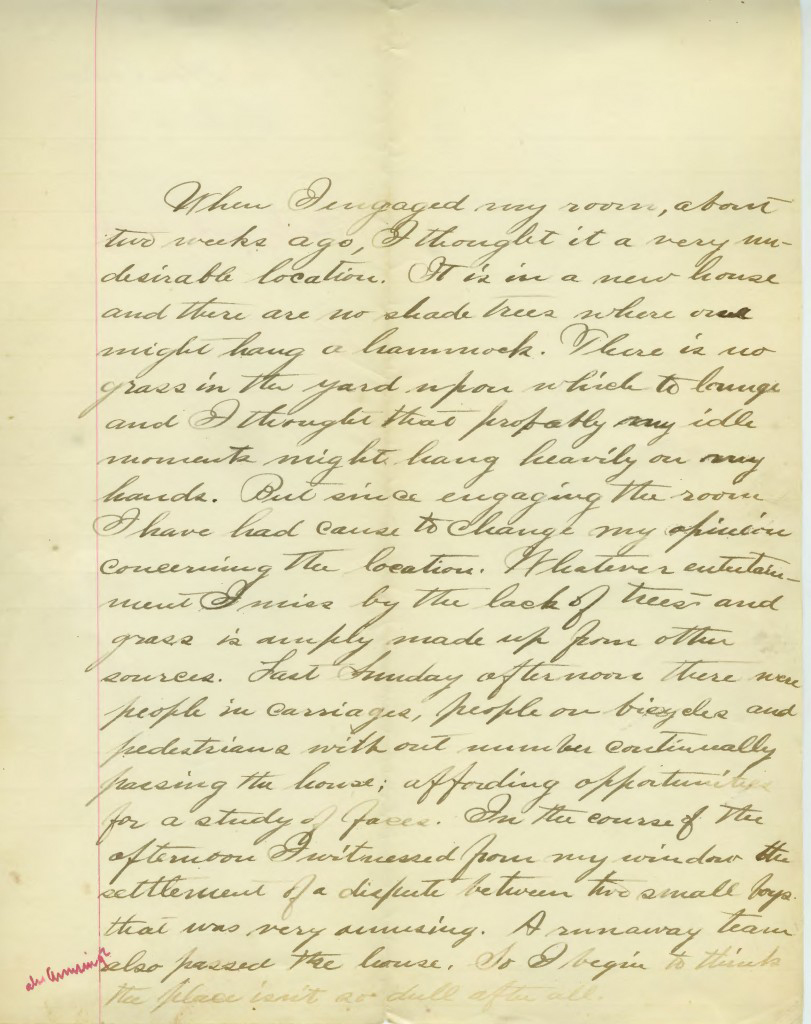 When I engaged my room, about
two weeks ago, I thought it a very un-
desirable location. It is in a new house
and there are no shade trees where one
might hang a hammock. There is no
grass in the yard upon which to lounge
and I thought that probably my idle
moments might hang heavily on my
hands. But since engaging the room
I have had cause to change my opinion
concerning the location. Whatever entertain-
ment I miss by the lack of trees and
grass is amply made up from other
sources. Last Sunday afternoon there were
people in carriages, people on bicycles and
pedestrians without number continually
passing the house; affording opportunities
for a study of faces. In the course of the
afternoon I witnessed from my window the
settlement of a dispute between two small boys
that was very amusing. A runaway team
also passed the house. So I begin to think
the place isn't so dull after all.